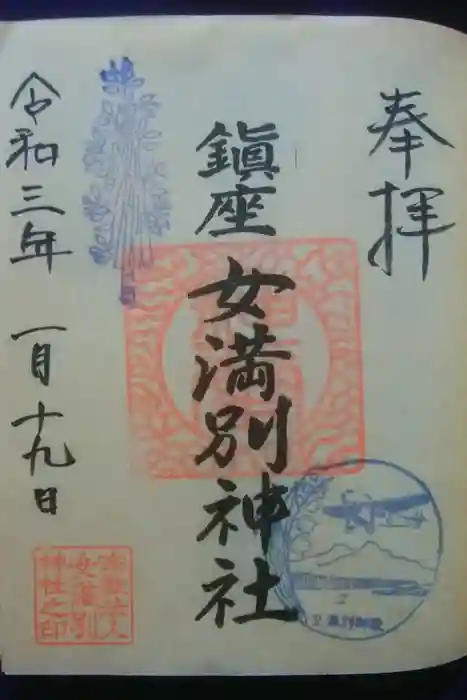 奉拝
鎮座
女満別神社
令和三年 一月十九日
女満別
神社之印